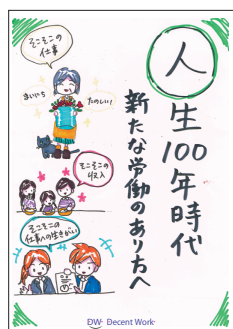 人生100年時代
新たな労働のあり方へ
そこそこの
仕事
まいにち
たのしい!
そこそこの
収入
そこそこの
仕事への生きがい
DW Decent Work